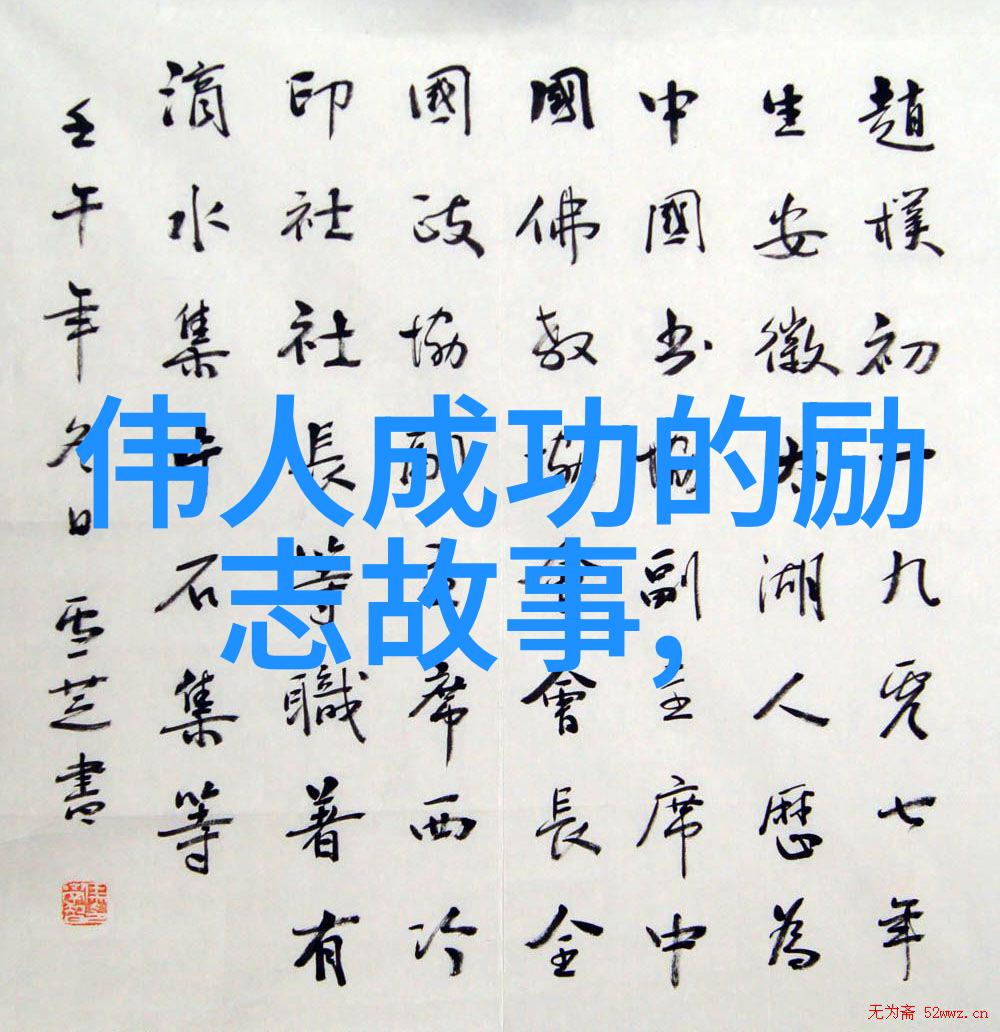 趙樸初一九零七年
生安徽太湖人歷為
中國书協副主席中
國佛教協会會長全
國政協副主席西冷
印社社長等職著有
滴水集片石集等
壬午年冬日雪芝書
伟人成功的励
志故事,
无为斋 52wwz.cn